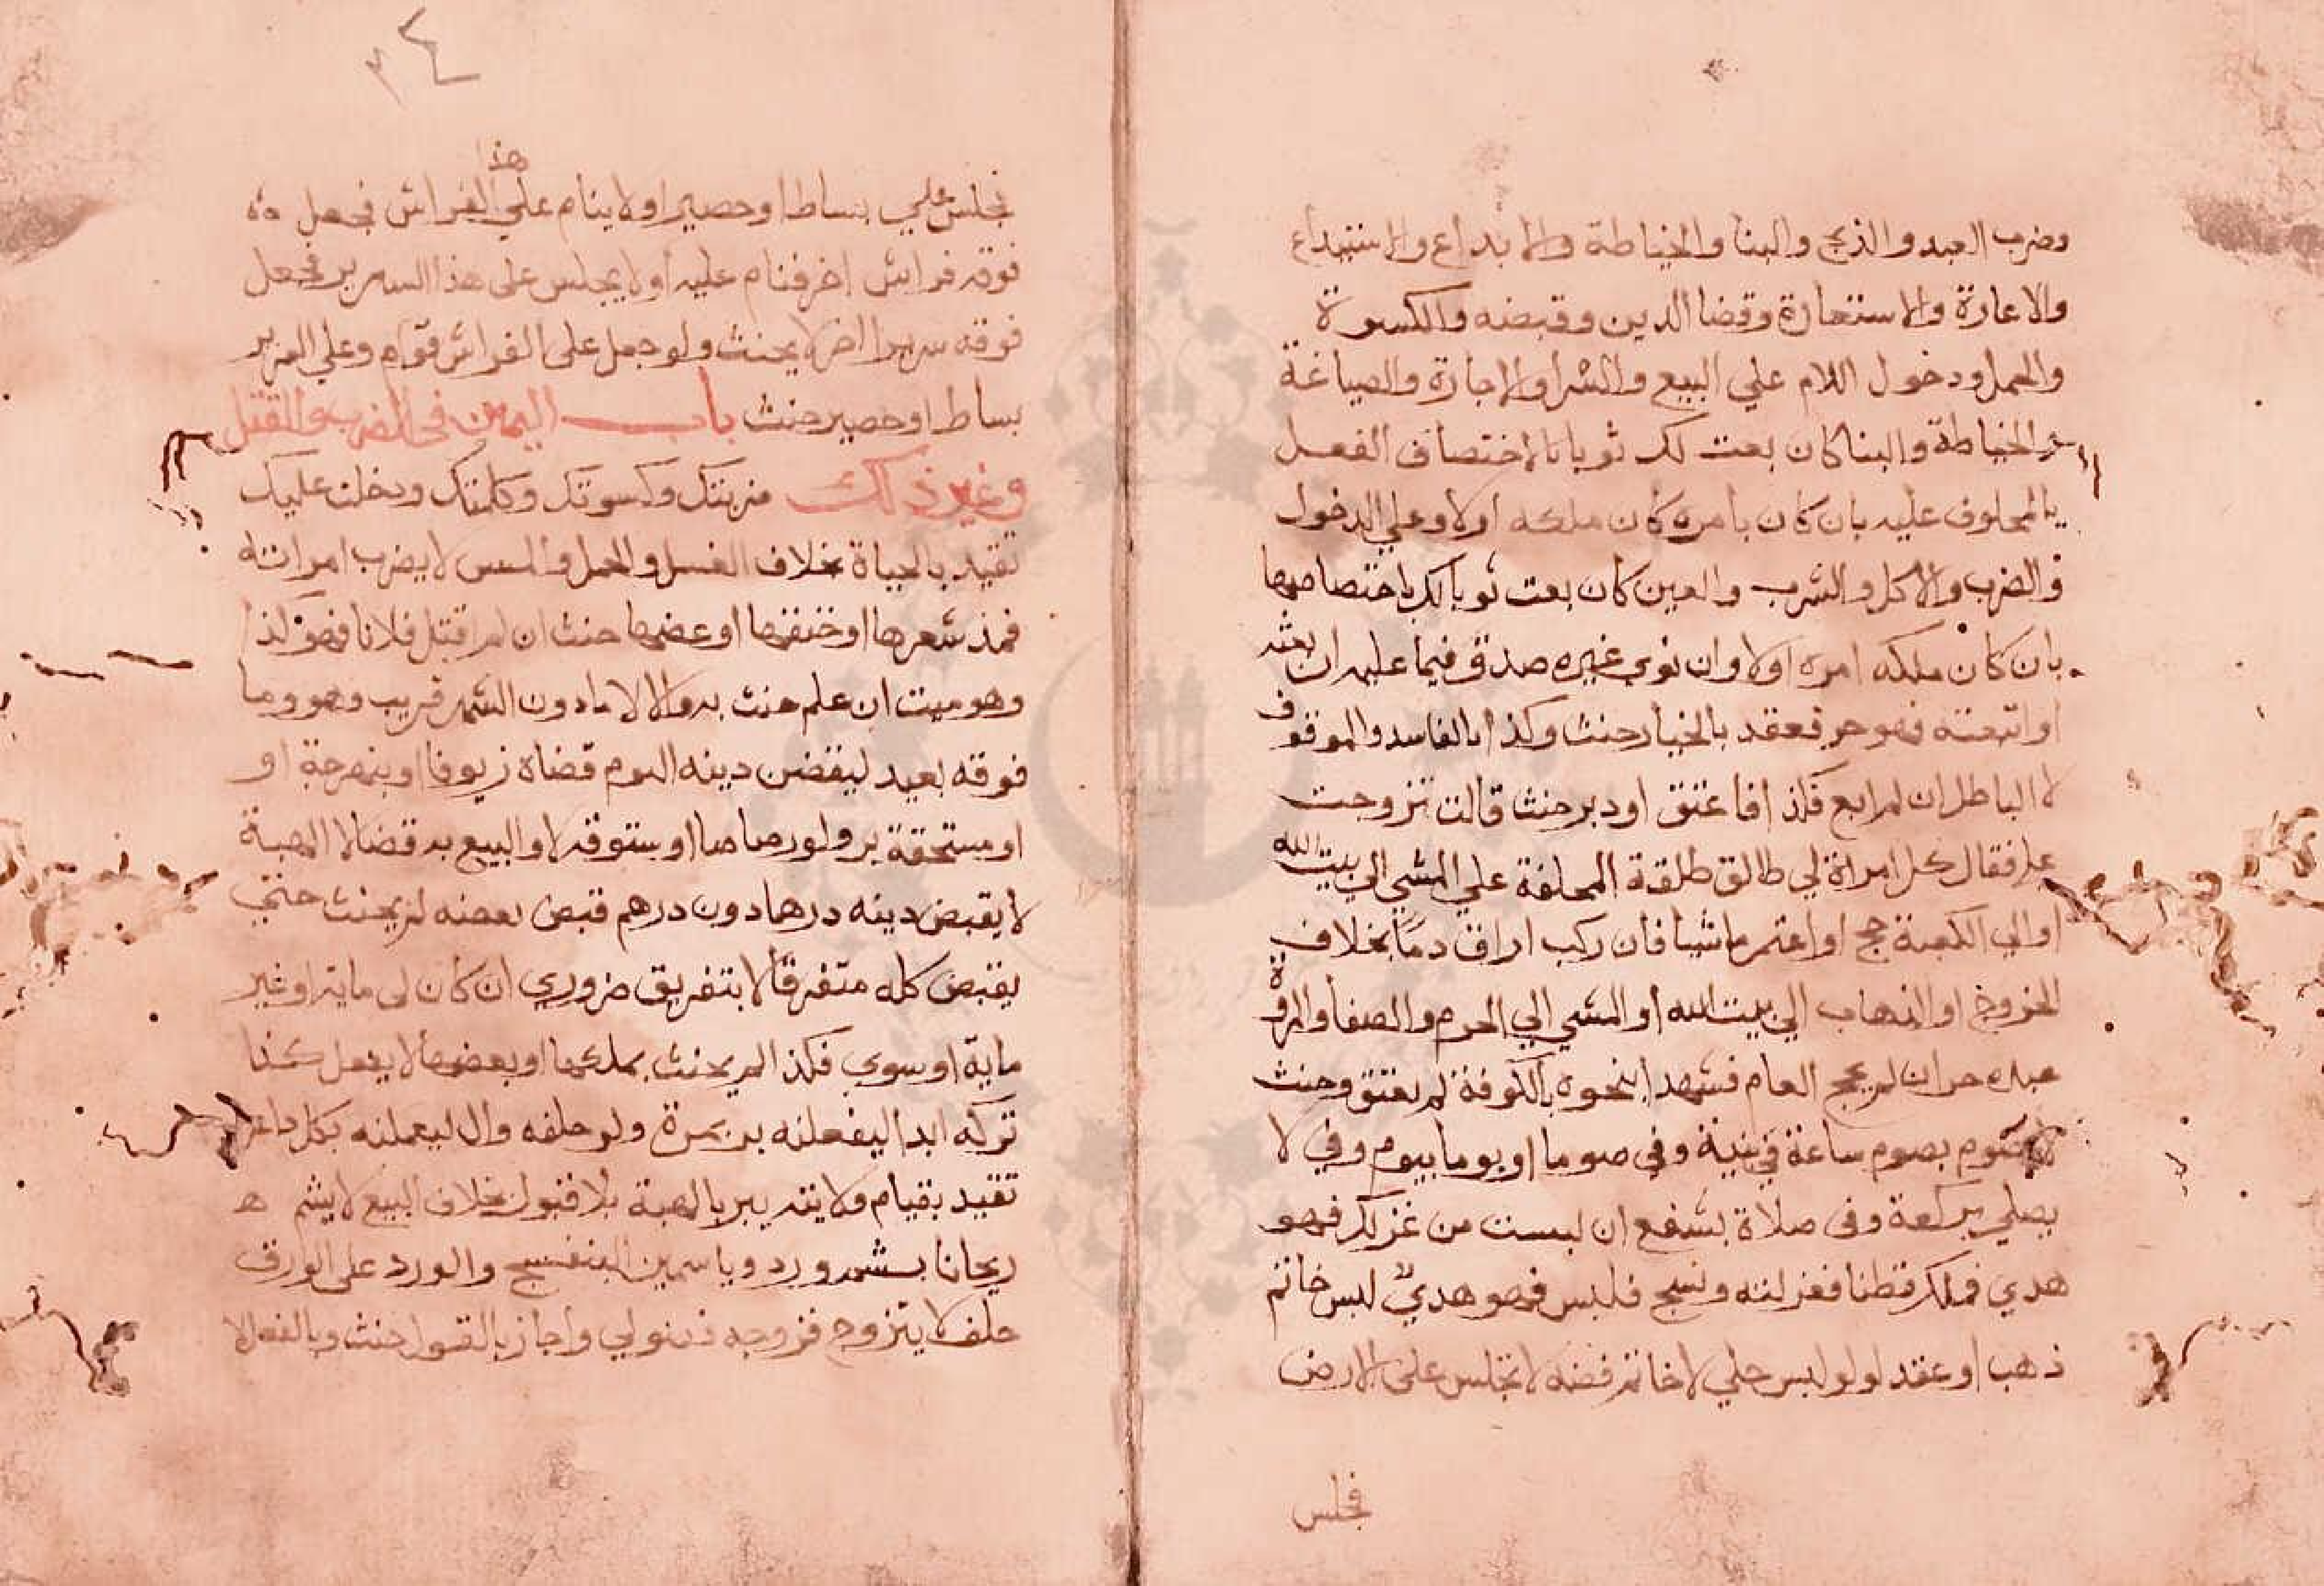 وضرب العبد والذبح والبنا والخياطة والايداع والاستيداع
والاعارة والاستعارة وقضا الدين وقبضه والكسوة
والحمل ودخول اللام علي البيع والشرا والاجارة والصياغة
والخياطة والبنا كان بعت لك ثوبا لاختصاف الفعل
بالمحلوف عليه بان كان بامره كان ملكه اولا وعلي الدخول
والضرب والاكل والشرب والعين كان بعت ثوبا لك باختصاصها
بان كان ملكه امره اولا وان نوي غيره صدق فيما عليه ان بعته
او ابتعته فهو حر فعقد بالخيار حنث وكذا بالفاسد والموقوف
لا الباطل ان لم ابع فكذا فاعتق او دبر حنث قالت تزوجت
علي فقال كل امراة لي طالق طلقت المحلفة علي المشي الي بيت الله
او الي الكعبة حج او اعتمر ماشيا فان ركب اراق دما بخلاف
الخروج او الذهاب الي بيت الله او المشي الي الحرم والصفا والمروة
عبده حر ان لم يحج العام فشهدا بنحره بالكوفة لم يعتق وحنث
لا يصوم بصوم ساعة في نية وفي صوما او يوما بيوم وفي لا
يصلي بركعة وفي صلاة بشفع ان لبست من غزلك فهو
هدي فملك قطنا فغزلته ونسج فلبس فهو هدي لبس خاتم
ذهب او عقد لولو لبس حلي لا خاتم فضه لا تجلس علي الارض
فجلس
٣٤
فجلس علي بساط او حصير او لا ينام علي هذا الفراش فجعل
فوقه فراش اخر فنام عليه او لا يجلس على هذا السرير فجعل
فوقه سريرا اخر لا يحنث ولو جعل على الفراش قرام وعلي السرير
بساط او حصير حنث باب اليمين في الضرب والقتل
وغير ذلك ضربتك وكسوتك وكلمتك ودخلت عليك
تقيد بالحياة بخلاف الغسل والحمل والمس لا يضرب امراته
فمد شعرها او خنقها او عضها حنث ان لم اقتل فلانا فهو كذا
وهو ميت ان علم حنث به والا لا مادون الشهر قريب وهو وما
فوقه بعيد ليقضين دينه اليوم قضاه زيوفا او بنهرجة او
او مستحقة بر ولو رصاصا او ستوقه لا والبيع به قضا لا الهبة
لا يقبض دينه درهما دون درهم فقبض بعضه لم يحنث حتي
يقبض كله متفرقا لا بتفريق ضروري ان كان لي ماية او غير
ماية او سوي فكذا لم يحنث بملكها او بعضها لا يفعل كذا
تركه ابدا ليفعلنه بر بمرة ولو حلفه وال ليعلمنه بكل داعر
تقيد بقيام ولايته يبر بالهبة بلا قبول بخلاف البيع لا يشم
ريحانا بشم ورد وياسمين البنفسج والورد على الورق
حلف لا يتزوج فزوجه فضولي واجاز بالقول حنث وبالفعل لا